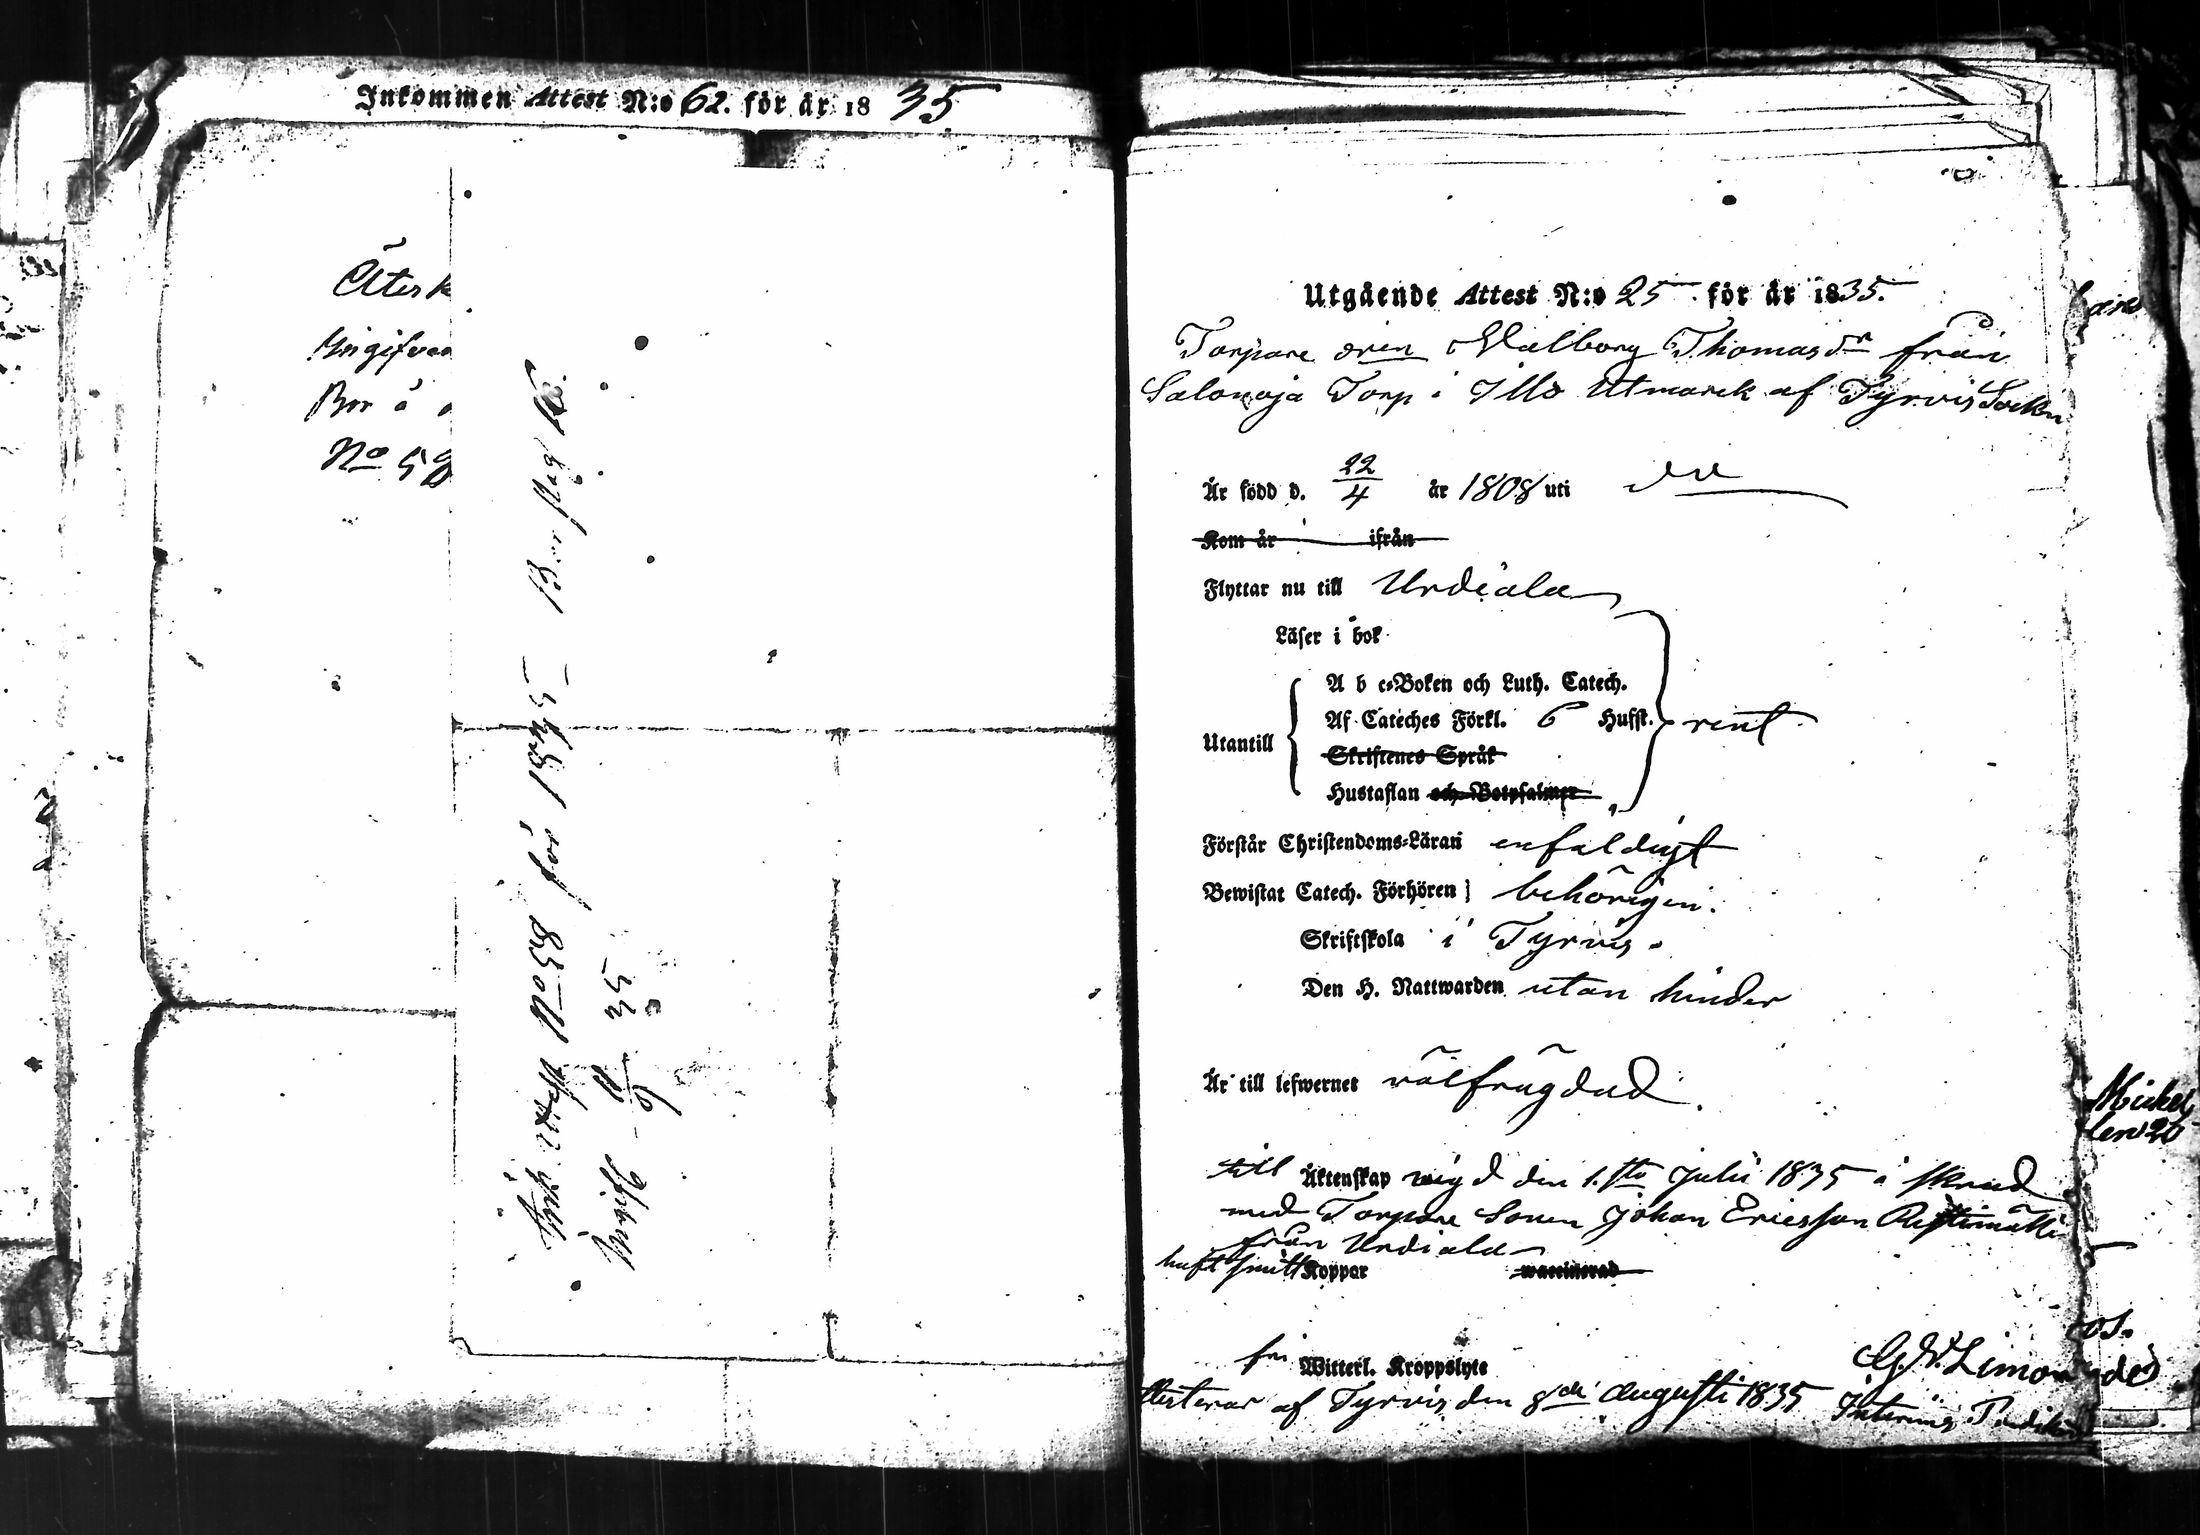 Inkommen Attest N:o 62. för år 1835
Återk
Ingifven
Bor å
No 59
Ink. attest No 58 för 1835 – Bor pag
Ingift
35
Utgående Attest N:o 25 för år 1835.
Torpare Valborg Thomasdr från
Salonoja Torp i Illo Utmark af Tyrvis Sockn
Är född d. 22/4 år 1808 uti
Kom år ifrån
Flyttar nu till Urdiala
Läser i bok
A b c=Boken och Luth. Catech.
Af Cateches Förkl. 6 Hufst. rent
Utantill
Skriftenes Språk
Hustaflan och Botpsalmer
Förstår Christendoms=Läran enfaldigt
Bewistat Catech. Förhören behörigen.
Skriftskola i Tyrvis.
Den H. Nattwarden utan hinder
Är till lefwernet välfrägdad.
till Äktenskap vigd den 1.sta Julii 1835 å
med Torpare Sonen Johan Ericsson
från Urdiala
haft Koppor waccinerad
fri Witterl. Kroppslyte
G. W. Limon
af Tyrvis den 8de Augusti 1835
Mickel